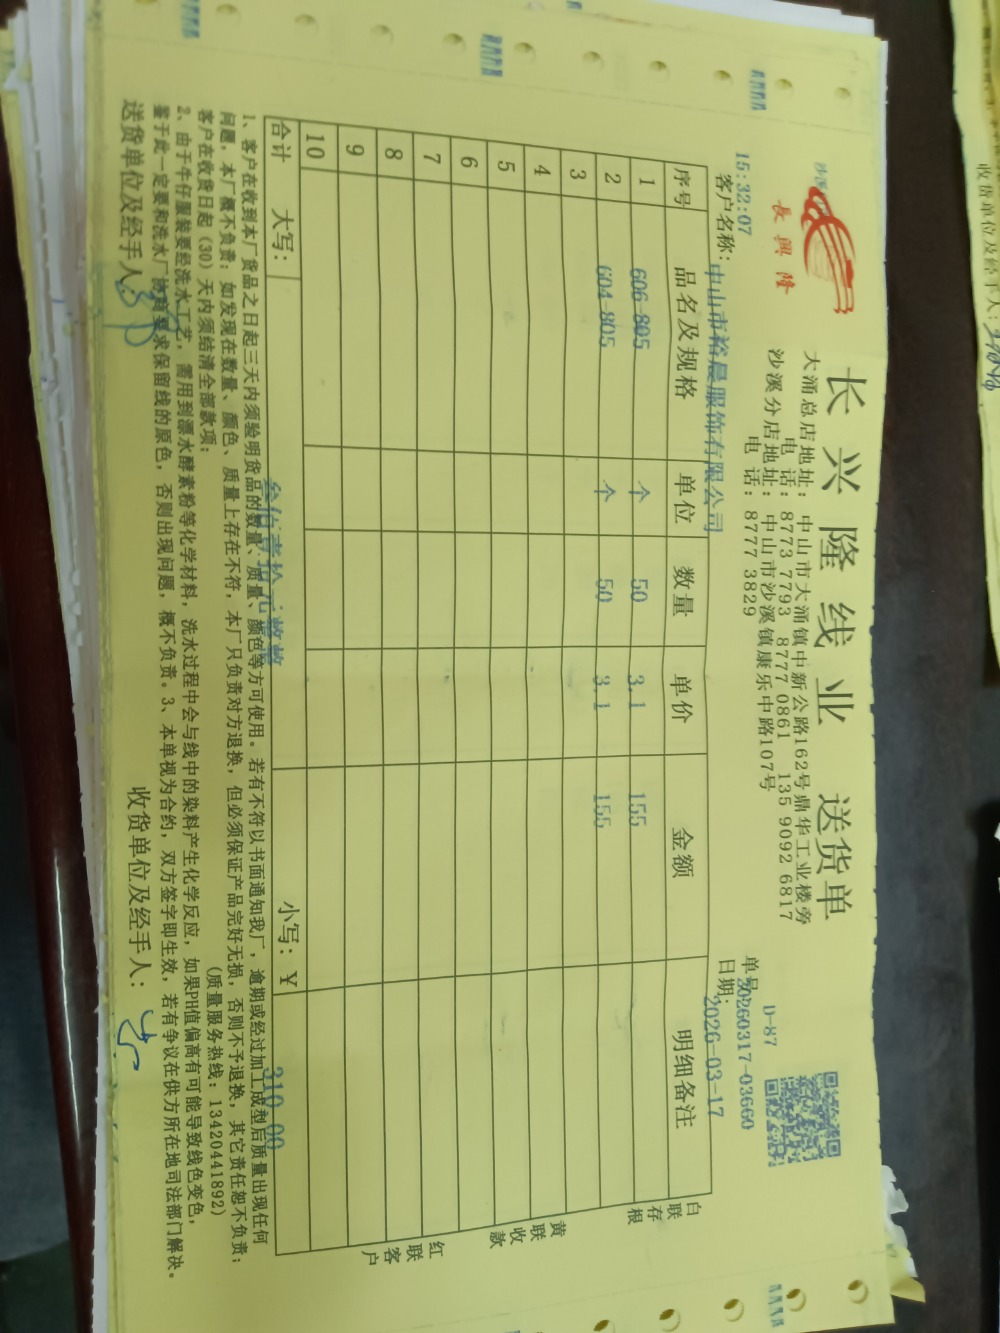 長興隆
长兴隆线业 送货单
大涌总店地址：中山市大涌镇中新公路162号鼎华工业楼旁
电 话：8773 7793 8777 0861 135 9092 6817
沙溪分店地址：中山市沙溪镇康乐中路107号
电 话：8777 3829
D-87
单号：20260317-03660
15:32:07
客户名称：中山市裕晨服饰有限公司
日期：2026-03-17
序号 品名及规格 单位 数量 单价 金额 明细备注
1 606-805 个 50 3.1 155
2 604-805 个 50 3.1 155
3
4
5
6
7
8
9
10
合计 大写：叁佰壹拾元整 小写：¥ 310.00
白联存根
黄联收款
红联客户
1、客户在收到本厂货品之日起三天内须验明货品的数量、质量、颜色等方可使用。若有不符以书面通知我厂，逾期或经过加工成型后质量出现任何
问题，本厂概不负责；如发现在数量、颜色、质量上存在不符，本厂只负责对方退换，但必须保证产品完好无损，否则不予退换，其它责任恕不负责；
客户在收货日起（30）天内须结清全部款项； （质量服务热线：13420441892）
2、由于牛仔服装要经洗水工艺，需用到漂水酵素粉等化学材料，洗水过程中会与线中的染料产生化学反应，如果PH值偏高有可能导致线色变色，
鉴于此一定要和洗水厂协商要求保留线的原色，否则出现问题，概不负责。3、本单视为合约，双方签字即生效，若有争议在供方所在地司法部门解决。
送货单位及经手人：
收货单位及经手人：
收货单位及经手人：